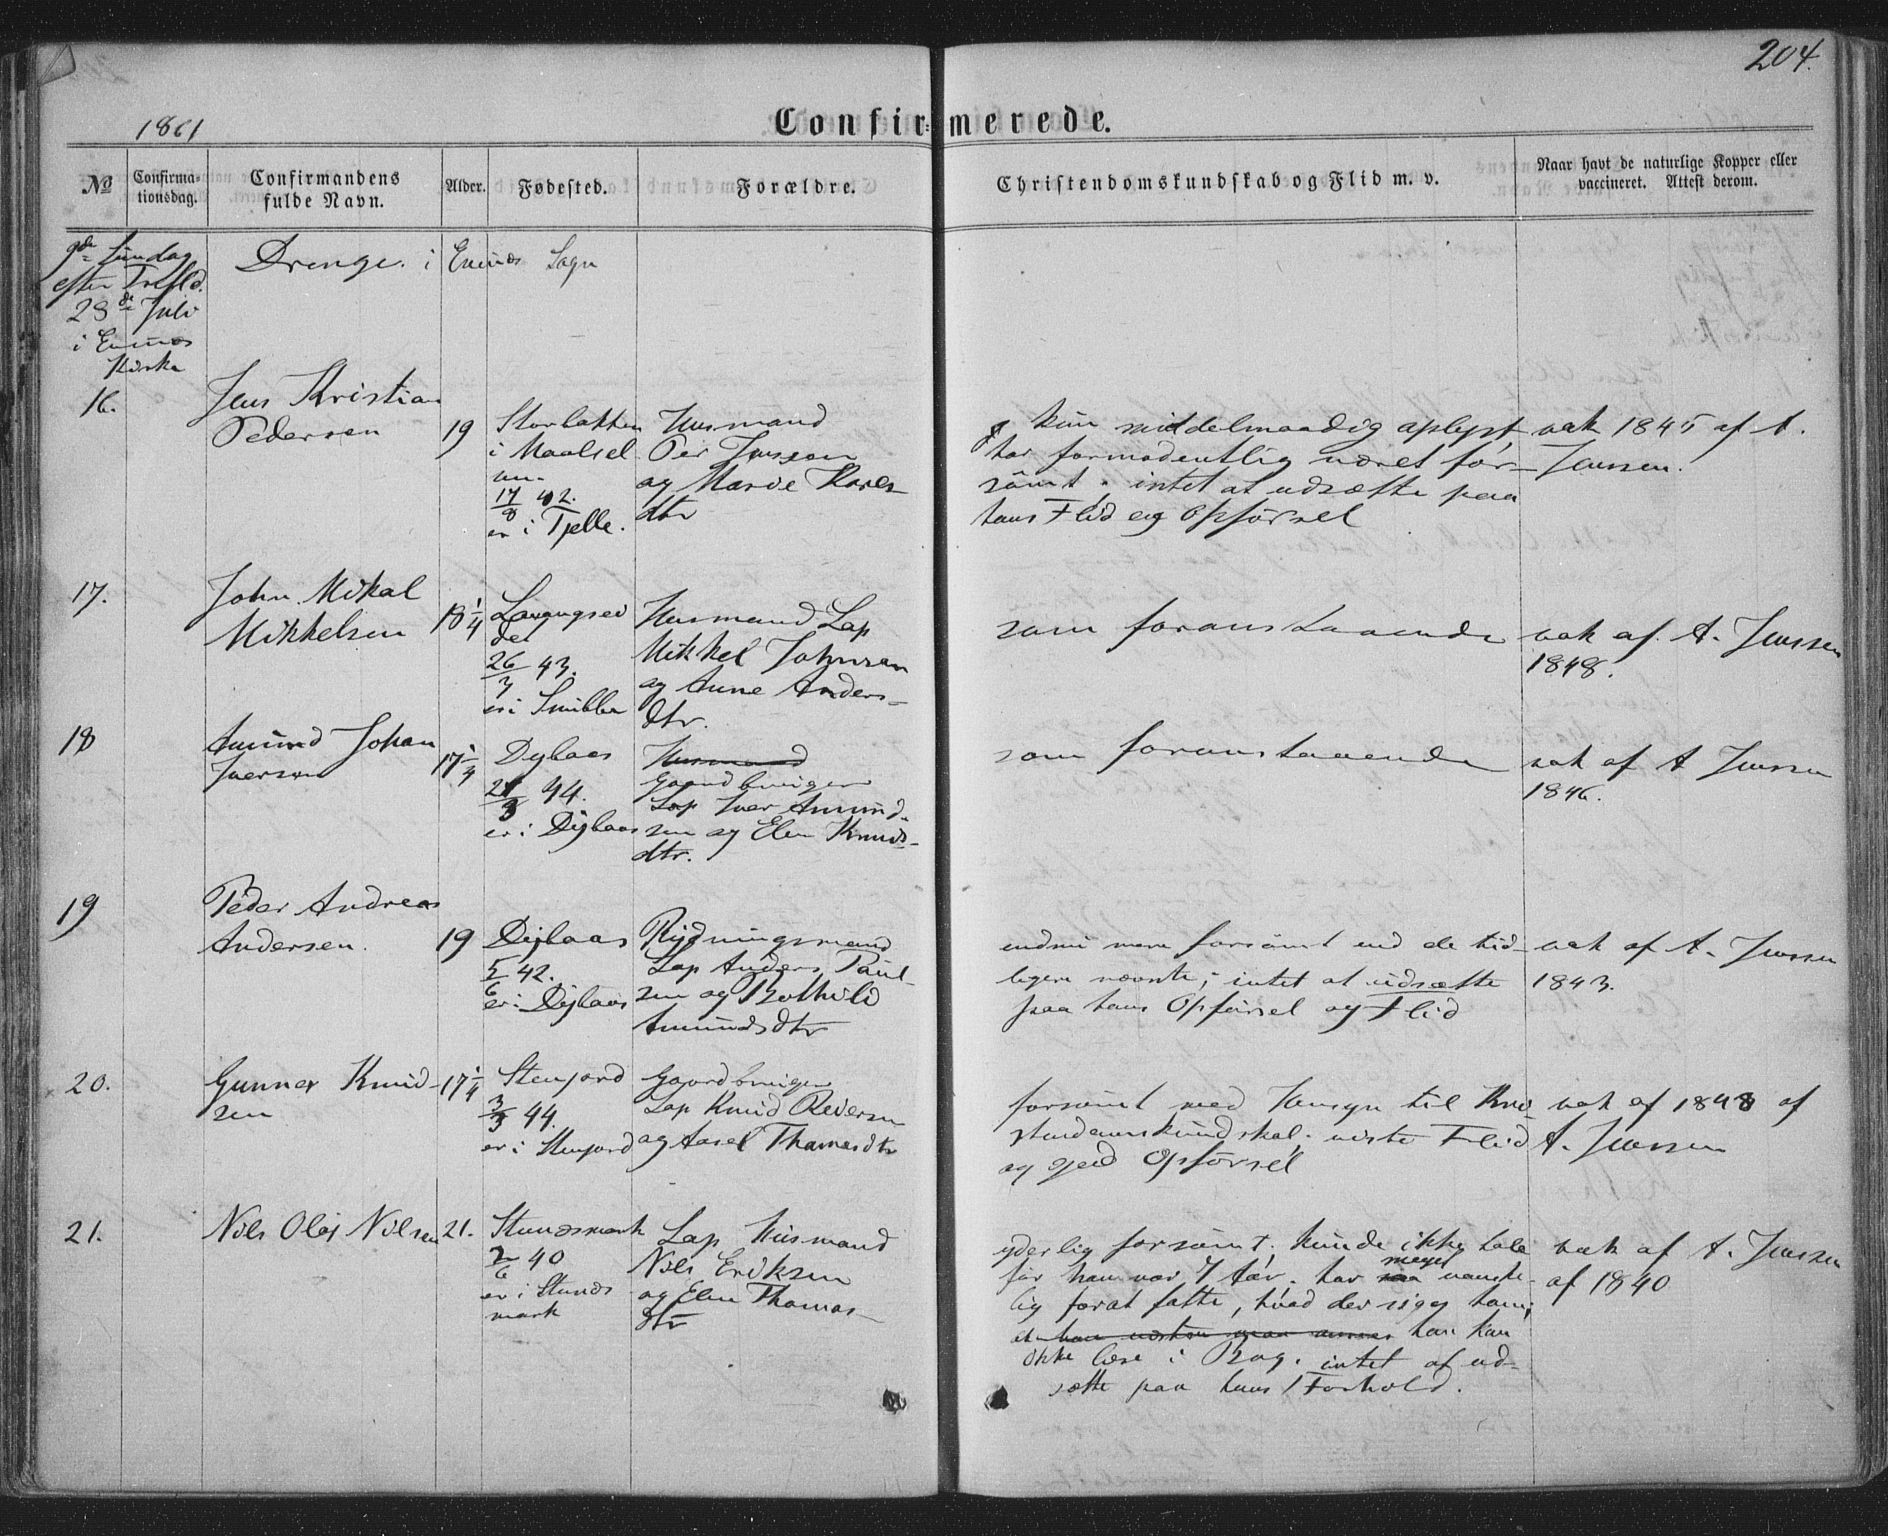 204.
1861
Confir=merede.
No
Confirma=
tionsdag.
Confirmandens
fulde Navn.
Alder.
Fødested.
Forældre.
Christendomskundskab og Flid m. v.
Naar havt de naturlige Kopper eller
vaccineret. Attest derom.
9de Sundag
efter Trefld.
28de Juli
i Evenæs
Kirke
Drenge. i Evenæs Sogn
16.
Jens Kristian
Pedersen
19
i Maalsel
ven.
17/8 42.
er i Tjelle.
Husmand
Per Jensson
og Marie Kares
dtr
kun middelmaadig oplyst,
har formodentlig været for-
sömt. intet at udsætte paa
hans Flid og Opförsel
vak 1845 af A.
Jenssen.
17.
John Mikal
Mikkelsen
18 1/4
Lavangsei
det
26/3 43.
er i Snubba
Husmand Lap
Mikkel Johnsen
og Anne Anders-
dtr.
som foranstaaende
vak af. A. Jenssen
1848.
18
Amund Johan
Iversen
17 1/4
Dybaas
44.
er i Dybaas
Husmand
Gaardbruger
Lap Iver Amund-
sen og Elen Knuds-
dtr.
som foranstaaende
vak af A Jenssen
1846.
19
Peder Andreas
Andersen.
19
Dijbaas
5/6 42.
er i Dijbaas
Rydningsmand
Lap Anders Paul-
sen og Bothild
Amundsdtr
endnu mere forsömt end de tid-
ligere nævnte; intet at udsætte
paa hans Opförsel og Flid
vak af A. Jenssen
1843.
20.
Gunnar Knud-
sen
17 1/4
Stenjord
3/3 44.
er i Stenjord
Gaardbruger
Lap Knud Pedersen
og Aasel Thomasdtr
forsömt med Hensyn til Kri
stendomskundskab; viste Flid
og god Opförsel
vak af 1848 af
A. Jenssen
21.
Nils Olaj Nilsen
21.
Stunesmark
2/6 40
er i Stunes
mark
Lap Husmand
Nils Eriksen
og Elen Thomas-
dtr
yderlig forsömt; kunde ikke tale
för han var 7 Aar. har saa meget vanske-
lig forat fatte, hvad der siges ham;
han kan
ikke læse i Bog. intet at ud-
sætte paa hans Forhold.
vak af A. Jenssen
af 1840